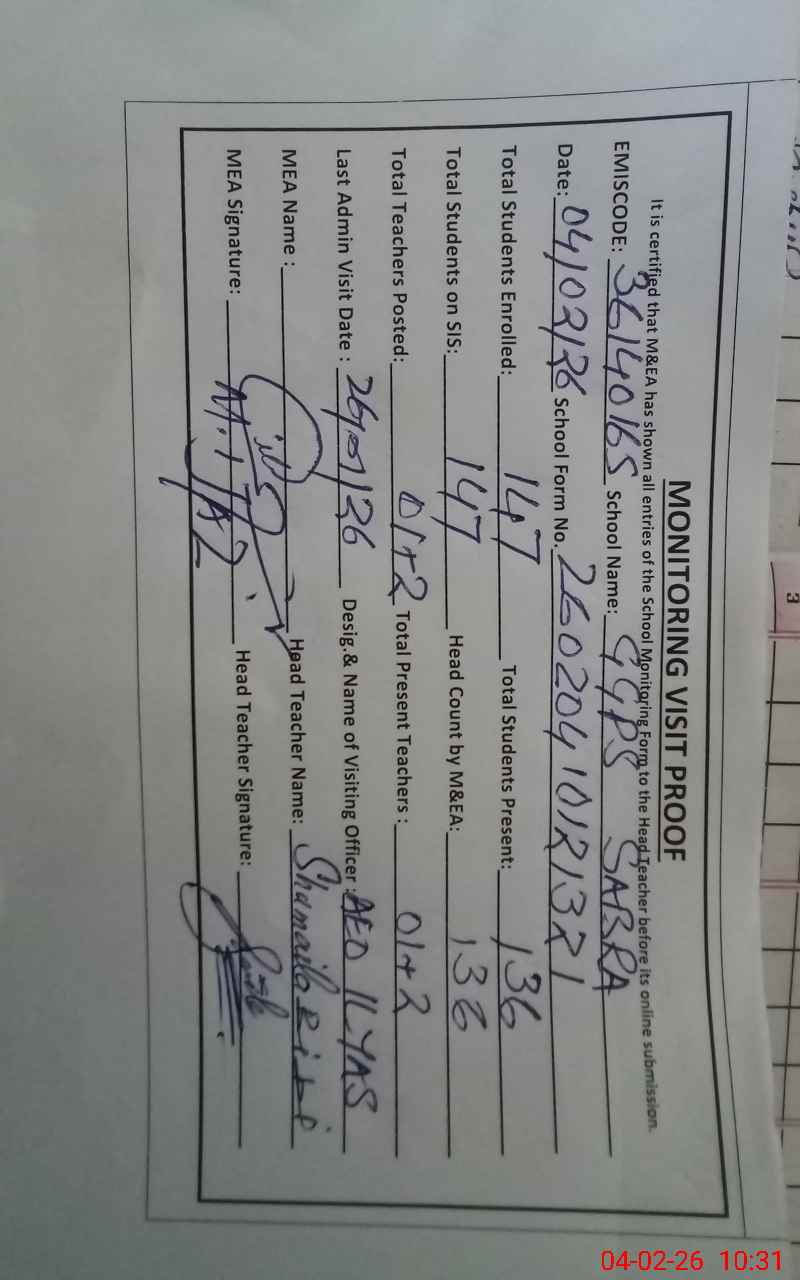 MONITORING VISIT PROOF
It is certified that M&EA has shown all entries of the School Monitoring Form to the Head Teacher before its online submission.
EMISCODE: 36140165 School Name: GGPS SABRA
Date: 04/02/26 School Form No. 26020410121321
Total Students Enrolled: 147 Total Students Present: 136
Total Students on SIS: 147 Head Count by M&EA: 136
Total Teachers Posted: 01+2 Total Present Teachers : 01+2
Last Admin Visit Date : 26/01/26 Desig.& Name of Visiting Officer : AEO ILYAS
MEA Name : Head Teacher Name: Shamaila Bibi
MEA Signature: Head Teacher Signature:
3
04-02-26 10:31